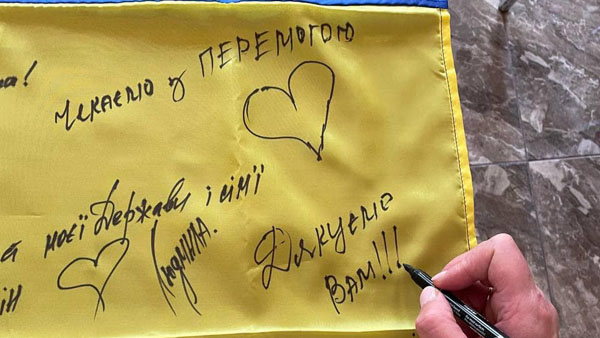 Чекаємо з ПЕРЕМОГОЮ
моєї Держави і сім'ї
Людмила.
Дякуємо
ВАМ!!!